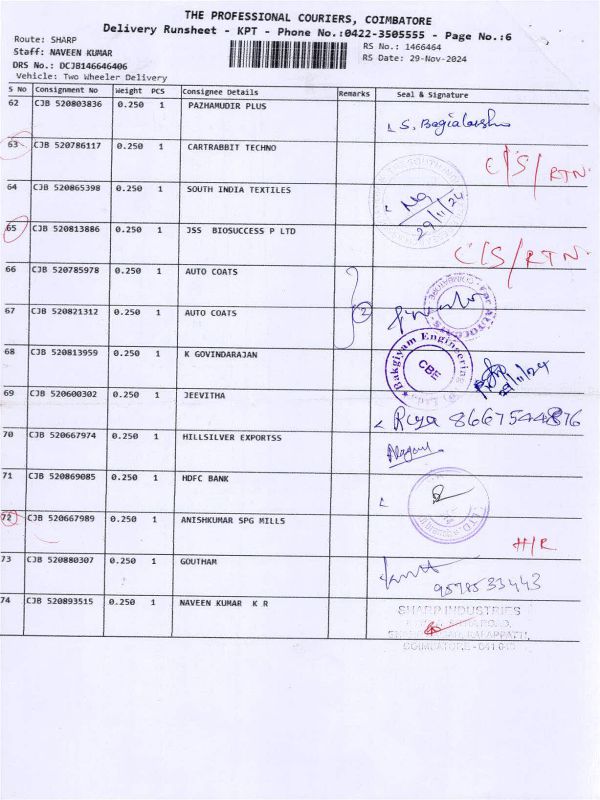 THE PROFESSIONAL COURIERS, COIMBATORE
Delivery Runsheet - KPT - Phone No.:0422-3505555 - Page No.:6
Route: SHARP
Staff: NAVEEN KUMAR
RS No.: 1466464
DRS No.: DCJB146646406
RS Date: 29-Nov-2024
Vehicle: Two Wheeler Delivery
S No Consignment No Weight PCS Consignee Details Remarks Seal & Signature
62 CJB 520803836 0.250 1 PAZHAMUDIR PLUS
63 CJB 520786117 0.250 1 CARTRABBIT TECHNO C/S/RTN
64 CJB 520865398 0.250 1 SOUTH INDIA TEXTILES 29/11/24
65 CJB 520813886 0.250 1 JSS BIOSUCCESS P LTD C/S/RTN
66 CJB 520785978 0.250 1 AUTO COATS
67 CJB 520821312 0.250 1 AUTO COATS 2
68 CJB 520813959 0.250 1 K GOVINDARAJAN Bakgiyam Engineering CBE 29/11/24
69 CJB 520600302 0.250 1 JEEVITHA Riya
70 CJB 520667974 0.250 1 HILLSILVER EXPORTSS
71 CJB 520869085 0.250 1 HDFC BANK
72 CJB 520667989 0.250 1 ANISHKUMAR SPG MILLS H/R
73 CJB 520880307 0.250 1 GOUTHAM 9578533443
74 CJB 520893515 0.250 1 NAVEEN KUMAR K R SHARP INDUSTRIES
COIMBATORE - 641